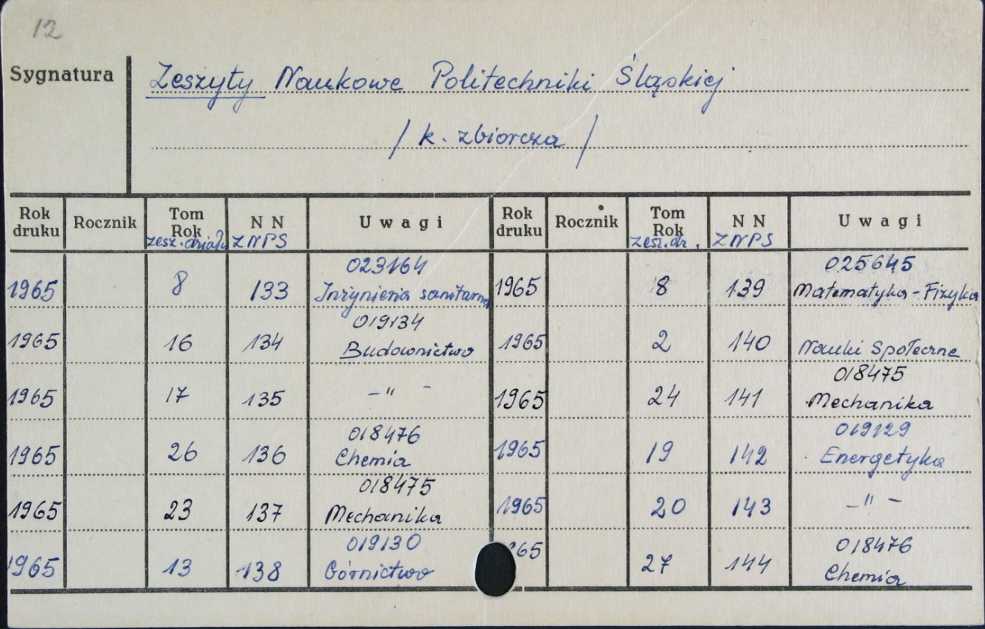 12
Sygnatura Zeszyty Naukowe Politechniki Śląskiej
/ k. zbiorcza /
Rok druku Rocznik Tom Rok N N Uwagi Rok druku Rocznik Tom Rok N N Uwagi
zesz. działu ZNPS zesz. dz. ZNPS
023164 025645
1965 8 133 Inżynieria sanitarna 1965 8 139 Matematyka - Fizyka
019134
1965 16 134 Budownictwo 1965 2 140 Nauki Społeczne
018475
1965 17 135 – " – 1965 24 141 Mechanika
018476 019129
1965 26 136 Chemia 1965 19 142 Energetyka
018475
1965 23 137 Mechanika 1965 20 143 – " –
019130 018476
1965 13 138 Górnictwo 65 27 144 Chemia